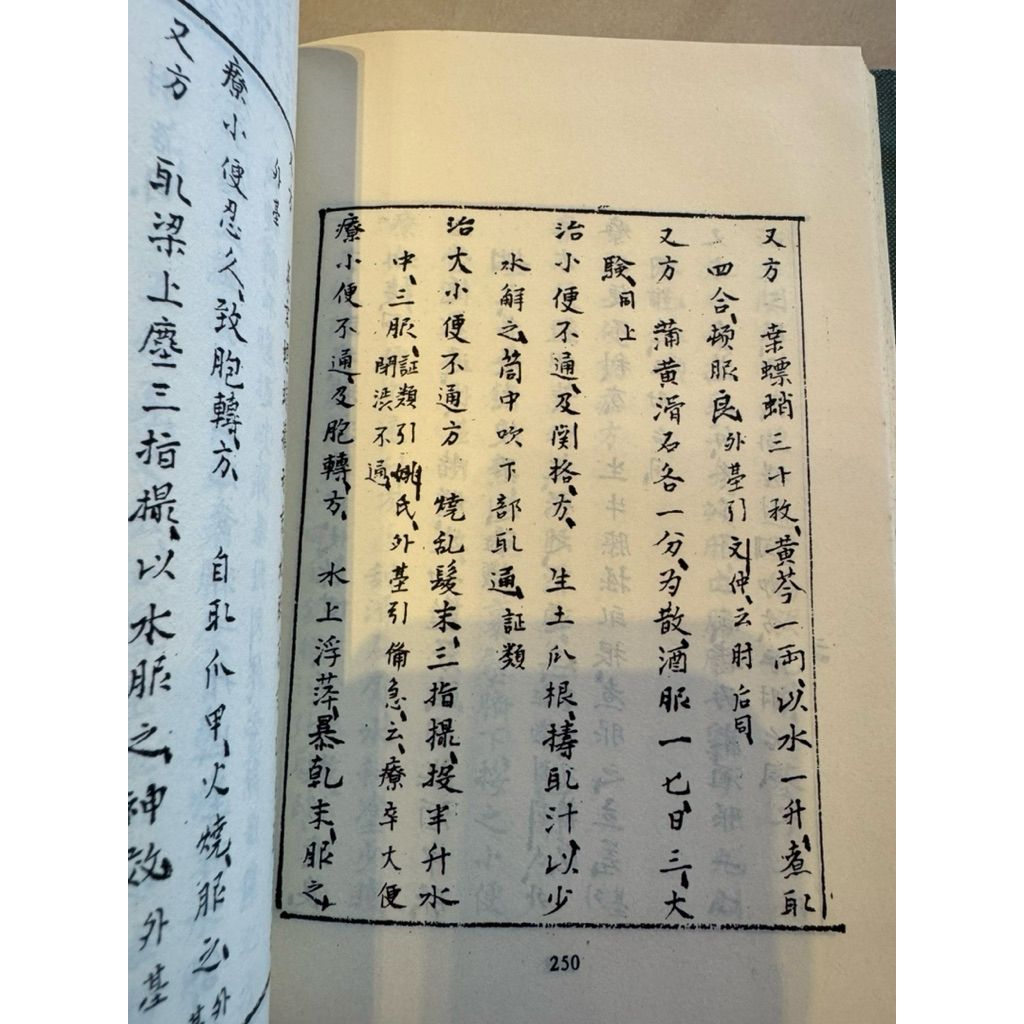 又方　桒螵蛸三十孜、黄芩一両、以水一升、煮取
四合、頓服良　外䑓引文仲、云肘后同
又方　蒲黄滑石各一分、为散、酒服一七、日三、大
験、同上
治小便不通、及関格方、　生土爪根、擣取汁、以少
水解之、筒中吹下部取通、証類
治大小便不通方　燒乱髮末、三指撮、投半升水
中、三服、証類引姚氏、外䑓引俻急、云、療卒大便
閉澁不通、
療小便不通、及胞轉方、　水上浮萍、暴乾末、服之、
250
外䑓
療小便忍久、致胞轉方、　自取爪甲、火燒、服之、外
又方　取梁上塵三指撮、以水服之、神效　外䑓